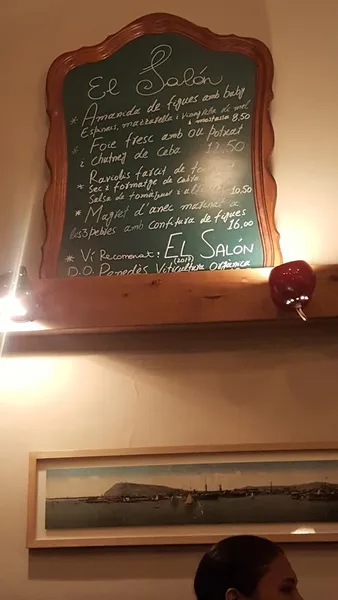 El Salón
* Amanida de figues amb baby
Espinacs, mozzarella i vinagreta de mel
i mostassa 8,50
* Foie fresc amb ou potxat
i chutney de ceba 12,50
* Raviolis farcit de
sec i formatge de cabra
Salsa de tomàquet i 10,50
* Magret d'anec macerat
les 3 pebres amb confitura de figues
16,00
* Vi Recomenat: EL SALÓN
(2017)
D.O. Penedès Viticultura Orgànica